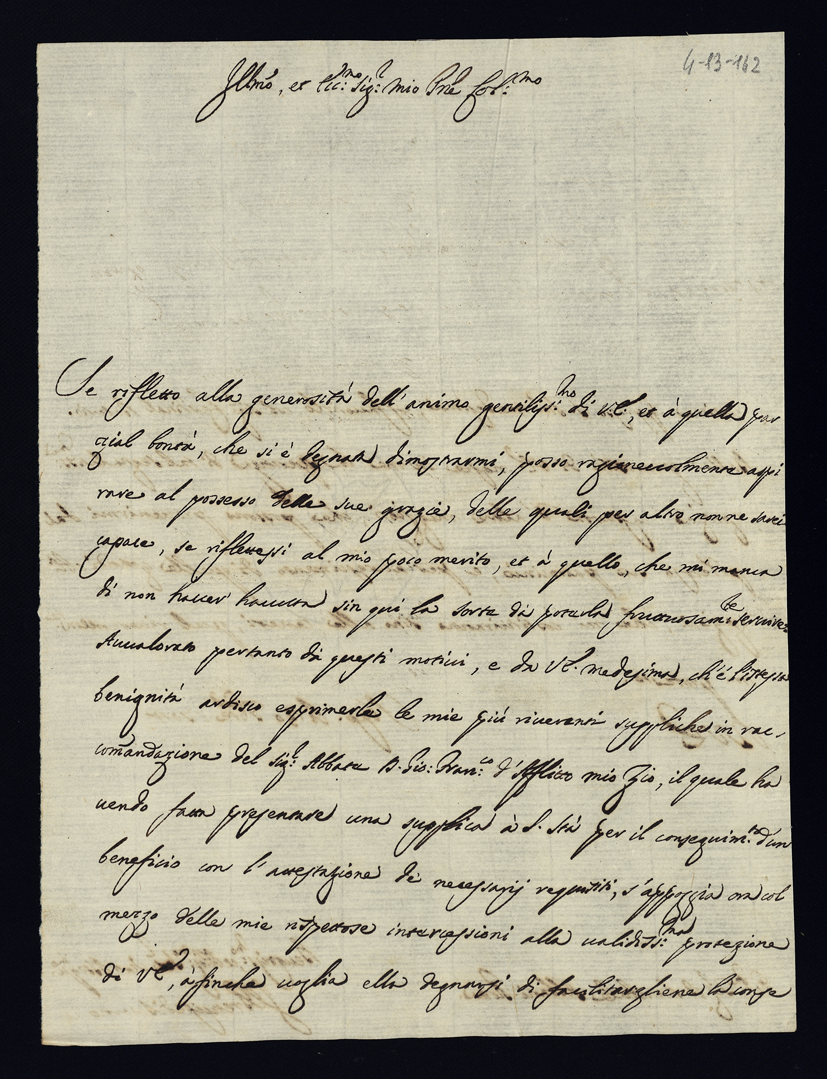 4-13-142
Illmo, et Ecc:mo Sig:r mio Pne Col:mo
Se rifletto alla generosità dell'animo gentiliss:mo di V.E., et à quella par
zial bontà, che si è degnata dimostrarmi, posso ragionevolmente aspi
rare al possesso delle sue grazie, delle quali per altro non ne sarei
capace, se riflettessi al mio poco merito, et à quello, che mi manca
di non haver havuta sin qui la sorte di poterla fruttuosam:te servire.
Avvalorato pertanto dà questi motivi, e da VE. medesima, ch'è l'istessa
benignità ardisco esprimerle le mie più riverenti suppliche in rac,
comandazione del Sig:r Abbate D. Gio: Fran:co d'Afflitto mio Zio, il quale ha
vendo fatta presentare una supplica à S. Stà per il conseguim:to d'un
beneficio con l'attestazione de necessarij requisiti, s'appoggia ora col
mezzo delle mie rispettose intercessioni alla validiss:ma protezione
di VE, à finche voglia ella degnarsi di facilitargliene la conse